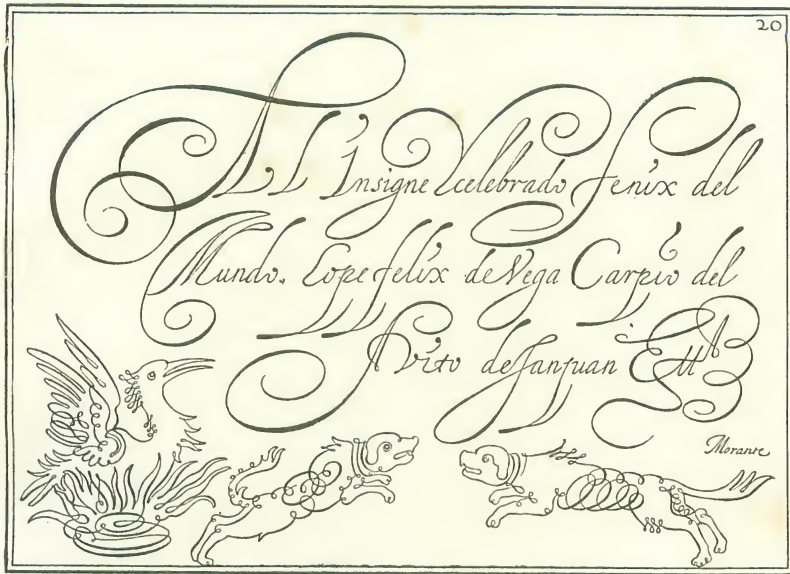 20
Al Insigne Ycelebrado fenix del
Mundo. Lope felix de Vega Carpio del
Avito de San Juan Ett
Morante